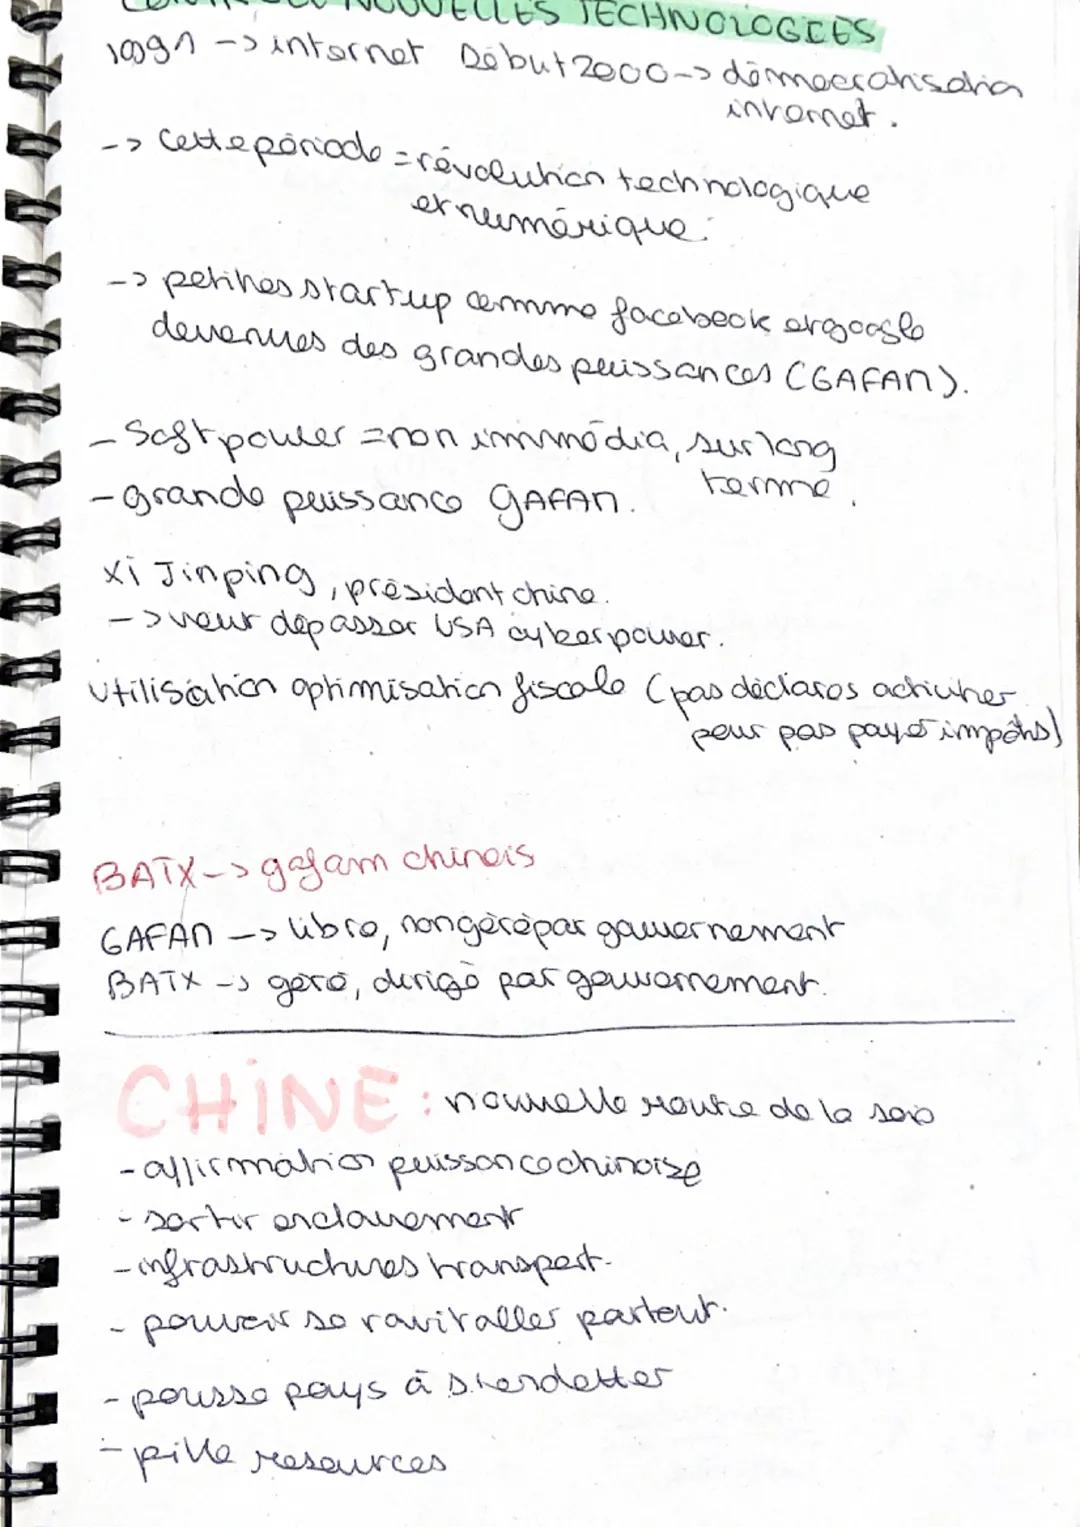 NOUVELLES TECHNOLOGIES
1991 -> internet Début 2000 -> démocratisation
internet.
-> Cette période = révolution technologique
et numérique.
-> petites startup comme facebook et google
devenues des grandes puissances (GAFAM).
- Soft power = non immédia, sur long
terme.
- grande puissance GAFAM.
Xi Jinping, président chine.
-> veut dépasser USA cyberpower.
Utilisation optimisation fiscale (pas déclarer activiter
pour pas payer impôts)
BATX -> gafam chinois
GAFAM -> libre, non géré par gouvernement
BATX -> géré, dirigé par gouvernement.
CHINE : nouvelle route de la soie
- affirmation puissance chinoise
- sortir enclavement
- infrastructures transport.
- pouvoir se ravitailler partout.
- pousse pays à s'endetter
- pille resources